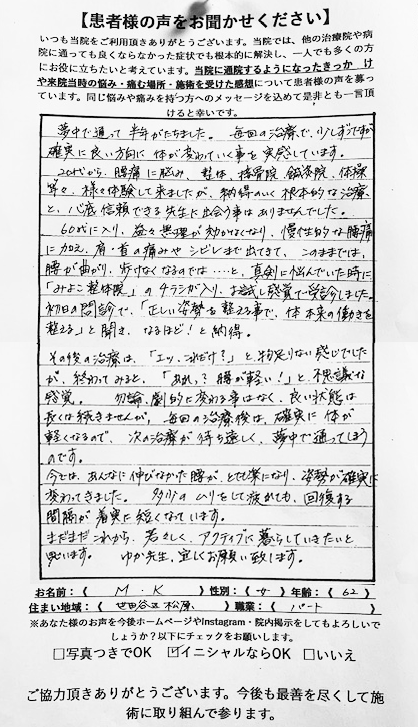 【患者様の声をお聞かせください】
いつも当院をご利用頂きありがとうございます。当院では、他の治療院や病
院に通っても良くならなかった症状でも根本的に解決し、一人でも多くの方
にお役に立ちたいと考えています。当院に通院するようになったきっか け
や来院当時の悩み・痛む場所・施術を受けた感想について患者様の声を募っ
ています。同じ悩みや痛みを持つ方へのメッセージを込めて是非とも一言頂
けると幸いです。
夢中で通って半年がたちました。 毎回の治療で、少しずつですが
確実に良い方向に体が変わっていく事を実感しています。
20代から、腰痛に悩み、整体、接骨院、鍼灸院、体操
等々、様々体験して来ましたが、納得のいく根本的な治療
と、心底信頼できる先生に出会う事はありませんでした。
60代に入り、益々無理が効かなくなり、慢性的な腰痛
に加え、肩・首の痛みやシビレまで出てきて、このままでは、
腰が曲がり、歩けなくなるのでは…と、真剣に悩んでいた時に
「みよこ整体院」のチラシが入り、お試し感覚で受診しました。
初日の問診で、「正しい姿勢を整える事で、体本来の働きを
整える」と聞き、なるほど!と納得。
その後の治療は、「エッ、これだけ?」と、物足りない感じでした
が、終わってみると、「あれっ?腰が軽い!」と、不思議な
感覚。 勿論、劇的に変わる事はなく、良い状態は
長くは続きませんが、毎回の治療後は、確実に体が
軽くなるので、次の治療が待ち遠しく、夢中で通ってしまう
のです。
今では、あんなに伸びなかった腰が、とても楽になり、姿勢が確実に
変わってきました。 多少のムリをして疲れても、回復する
間隔が着実に短くなっています。
まだまだこれから、若々しく、アクティブに暮らしていきたいと
思います。 ゆか先生、宜しくお願い致します。
お名前:( M.K )性別:( 女 )年齢:( 62 )
住まい地域:( 世田谷区松原 )職業:( パート )
※あなた様のお声を今後ホームページやInstagram・院内掲示をしてもよろしいで
しょうか?以下にチェックをお願いします。
□写真つきでOK ☑イニシャルならOK □いいえ
ご協力頂きありがとうございます。今後も最善を尽くして施
術に取り組んで参ります。